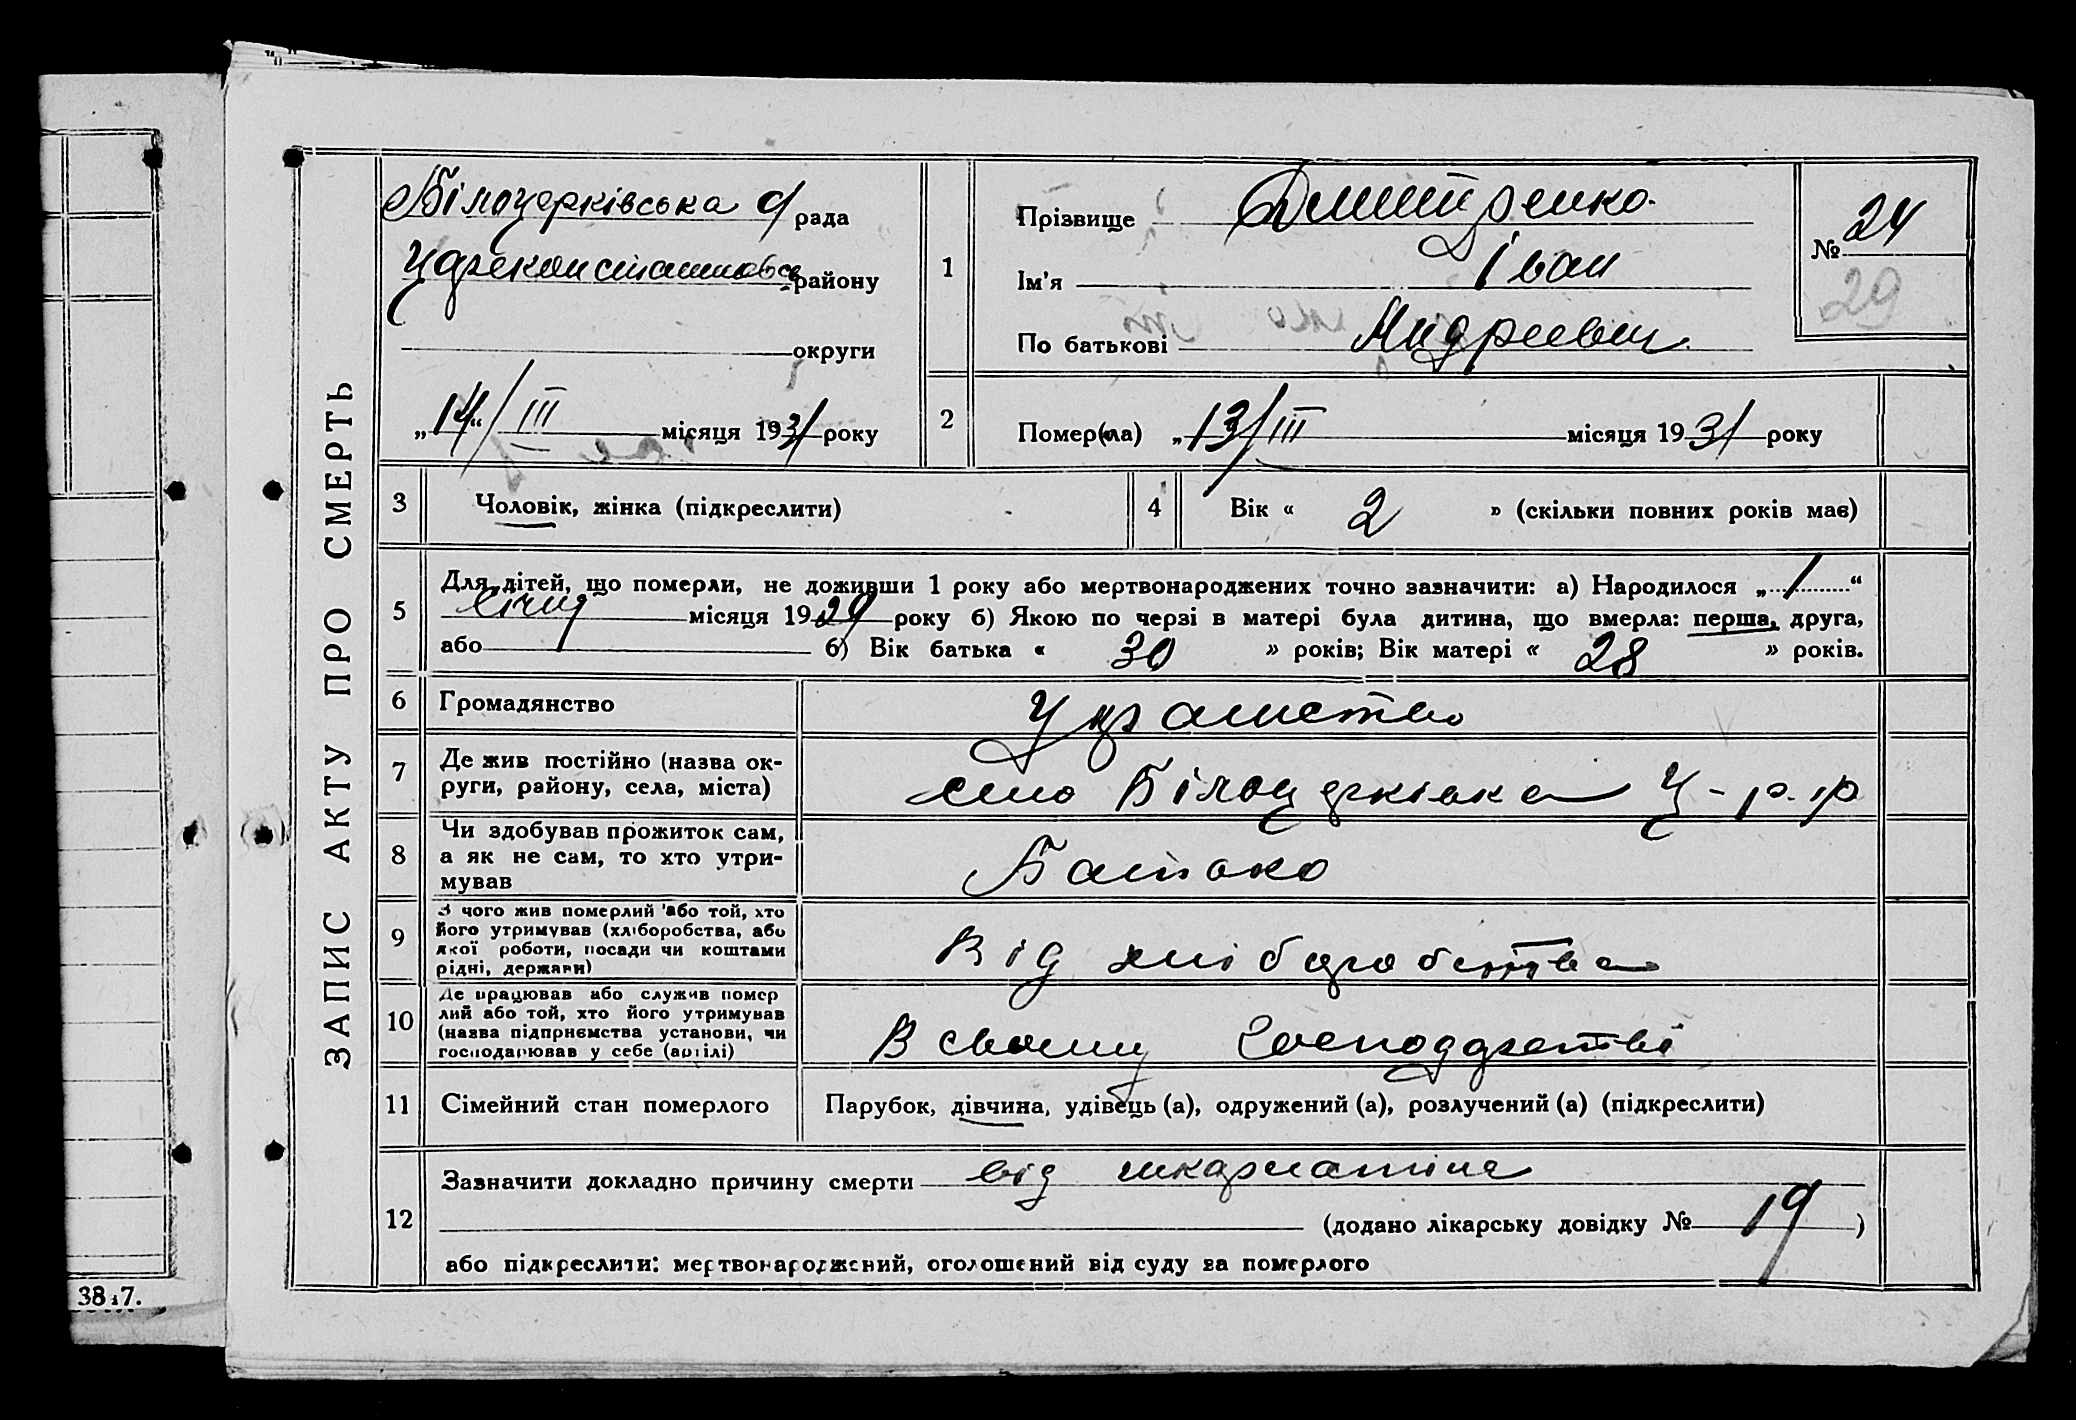 ЗАПИС АКТУ ПРО СМЕРТЬ
Білоцерківська с/рада
району
округи
„14“ III місяця 1931 року
1
Прізвище Дмитренко
Ім'я Іван
По батькові Андреевич
№ 24
29
2
Помер(ла) „13/III місяця 1931 року
3 Чоловік, жінка (підкреслити)
4 Вік « 2 » (скільки повних років має)
5
Для дітей, що померли, не доживши 1 року або мертвонароджених точно зазначити: а) Народилося „ 1 “
січня місяця 1929 року б) Якою по черзі в матері була дитина, що вмерла: перша, друга,
або б) Вік батька « 30 » років; Вік матері « 28 » років.
6 Громадянство
7
Де жив постійно (назва ок-
руги, району, села, міста)
село Білоцерківка Ц-р.р
8
Чи здобував прожиток сам,
а як не сам, то хто утри-
мував
Батько
9
З чого жив померлий або той, хто
його утримував (хліборобства, або
якої роботи, посади чи коштами
рідні, держави)
Від хліборобства
10
Де працював або служив помер
лий або той, хто його утримував
(назва підприємства установи, чи
господарював у себе (артілі)
В своему Господарстві
11 Сімейний стан померлого
Парубок, дівчина, удівець (а), одружений (а), розлучений (а) (підкреслити)
12
Зазначити докладно причину смерти від шкарлатіни
(додано лікарську довідку № 19 )
або підкреслити: мертвонароджений, оголошений від суду за померлого
38 7.